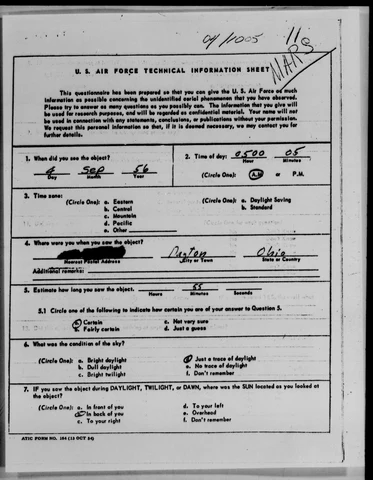 11g
MARS
U. S. AIR FORCE TECHNICAL INFORMATION SHEET
This questionnaire has been prepared so that you can give the U. S. Air Force as much
information as possible concerning the unidentified aerial phenomenon that you have observed.
Please try to answer as many questions as you possibly can. The information that you give will
be used for research purposes, and will be regarded as confidential material. Your name will not
be used in connection with any statements, conclusions, or publications without your permission.
We request this personal information so that, if it is deemed necessary, we may contact you for
further details.
1. When did you see the object?
4 Sep 56
Day Month Year
2. Time of day: 0500 05
Hour Minutes
(Circle One): A.M. or P.M.
3. Time zone:
(Circle One): a. Eastern
b. Central
c. Mountain
d. Pacific
e. Other
(Circle One): a. Daylight Saving
b. Standard
4. Where were you when you saw the object?
Dayton Ohio
Nearest Postal Address City or Town State or Country
Additional remarks:
5. Estimate how long you saw the object. 55
Hours Minutes Seconds
5.1 Circle one of the following to indicate how certain you are of your answer to Question 5.
a. Certain c. Not very sure
b. Fairly certain d. Just a guess
6. What was the condition of the sky?
(Circle One): a. Bright daylight d. Just a trace of daylight
b. Dull daylight e. No trace of daylight
c. Bright twilight f. Don't remember
7. IF you saw the object during DAYLIGHT, TWILIGHT, or DAWN, where was the SUN located as you looked at
the object?
(Circle One): a. In front of you d. To your left
b. In back of you e. Overhead
c. To your right f. Don't remember
ATIC FORM NO. 164 (13 OCT 54)